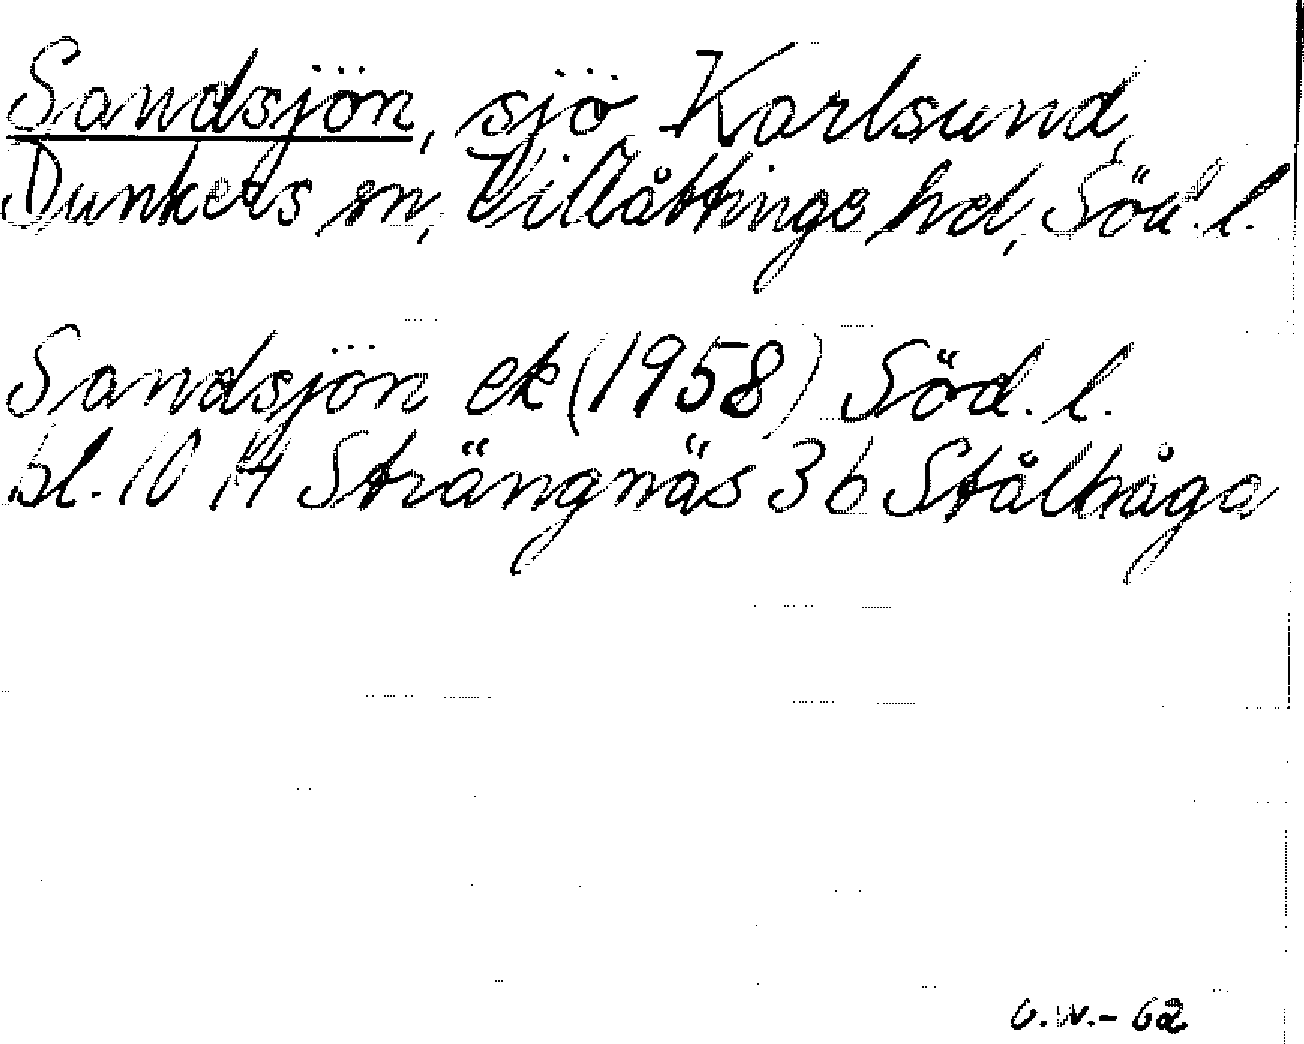 Sandsjön, sjö, Karlsund,
Dunkers sn, Villåttinge hd, Söd. l.
Sandsjön ek (1958) Söd. l.
bl. 10 H Strängnäs 3b Stålboga
G.W.-62